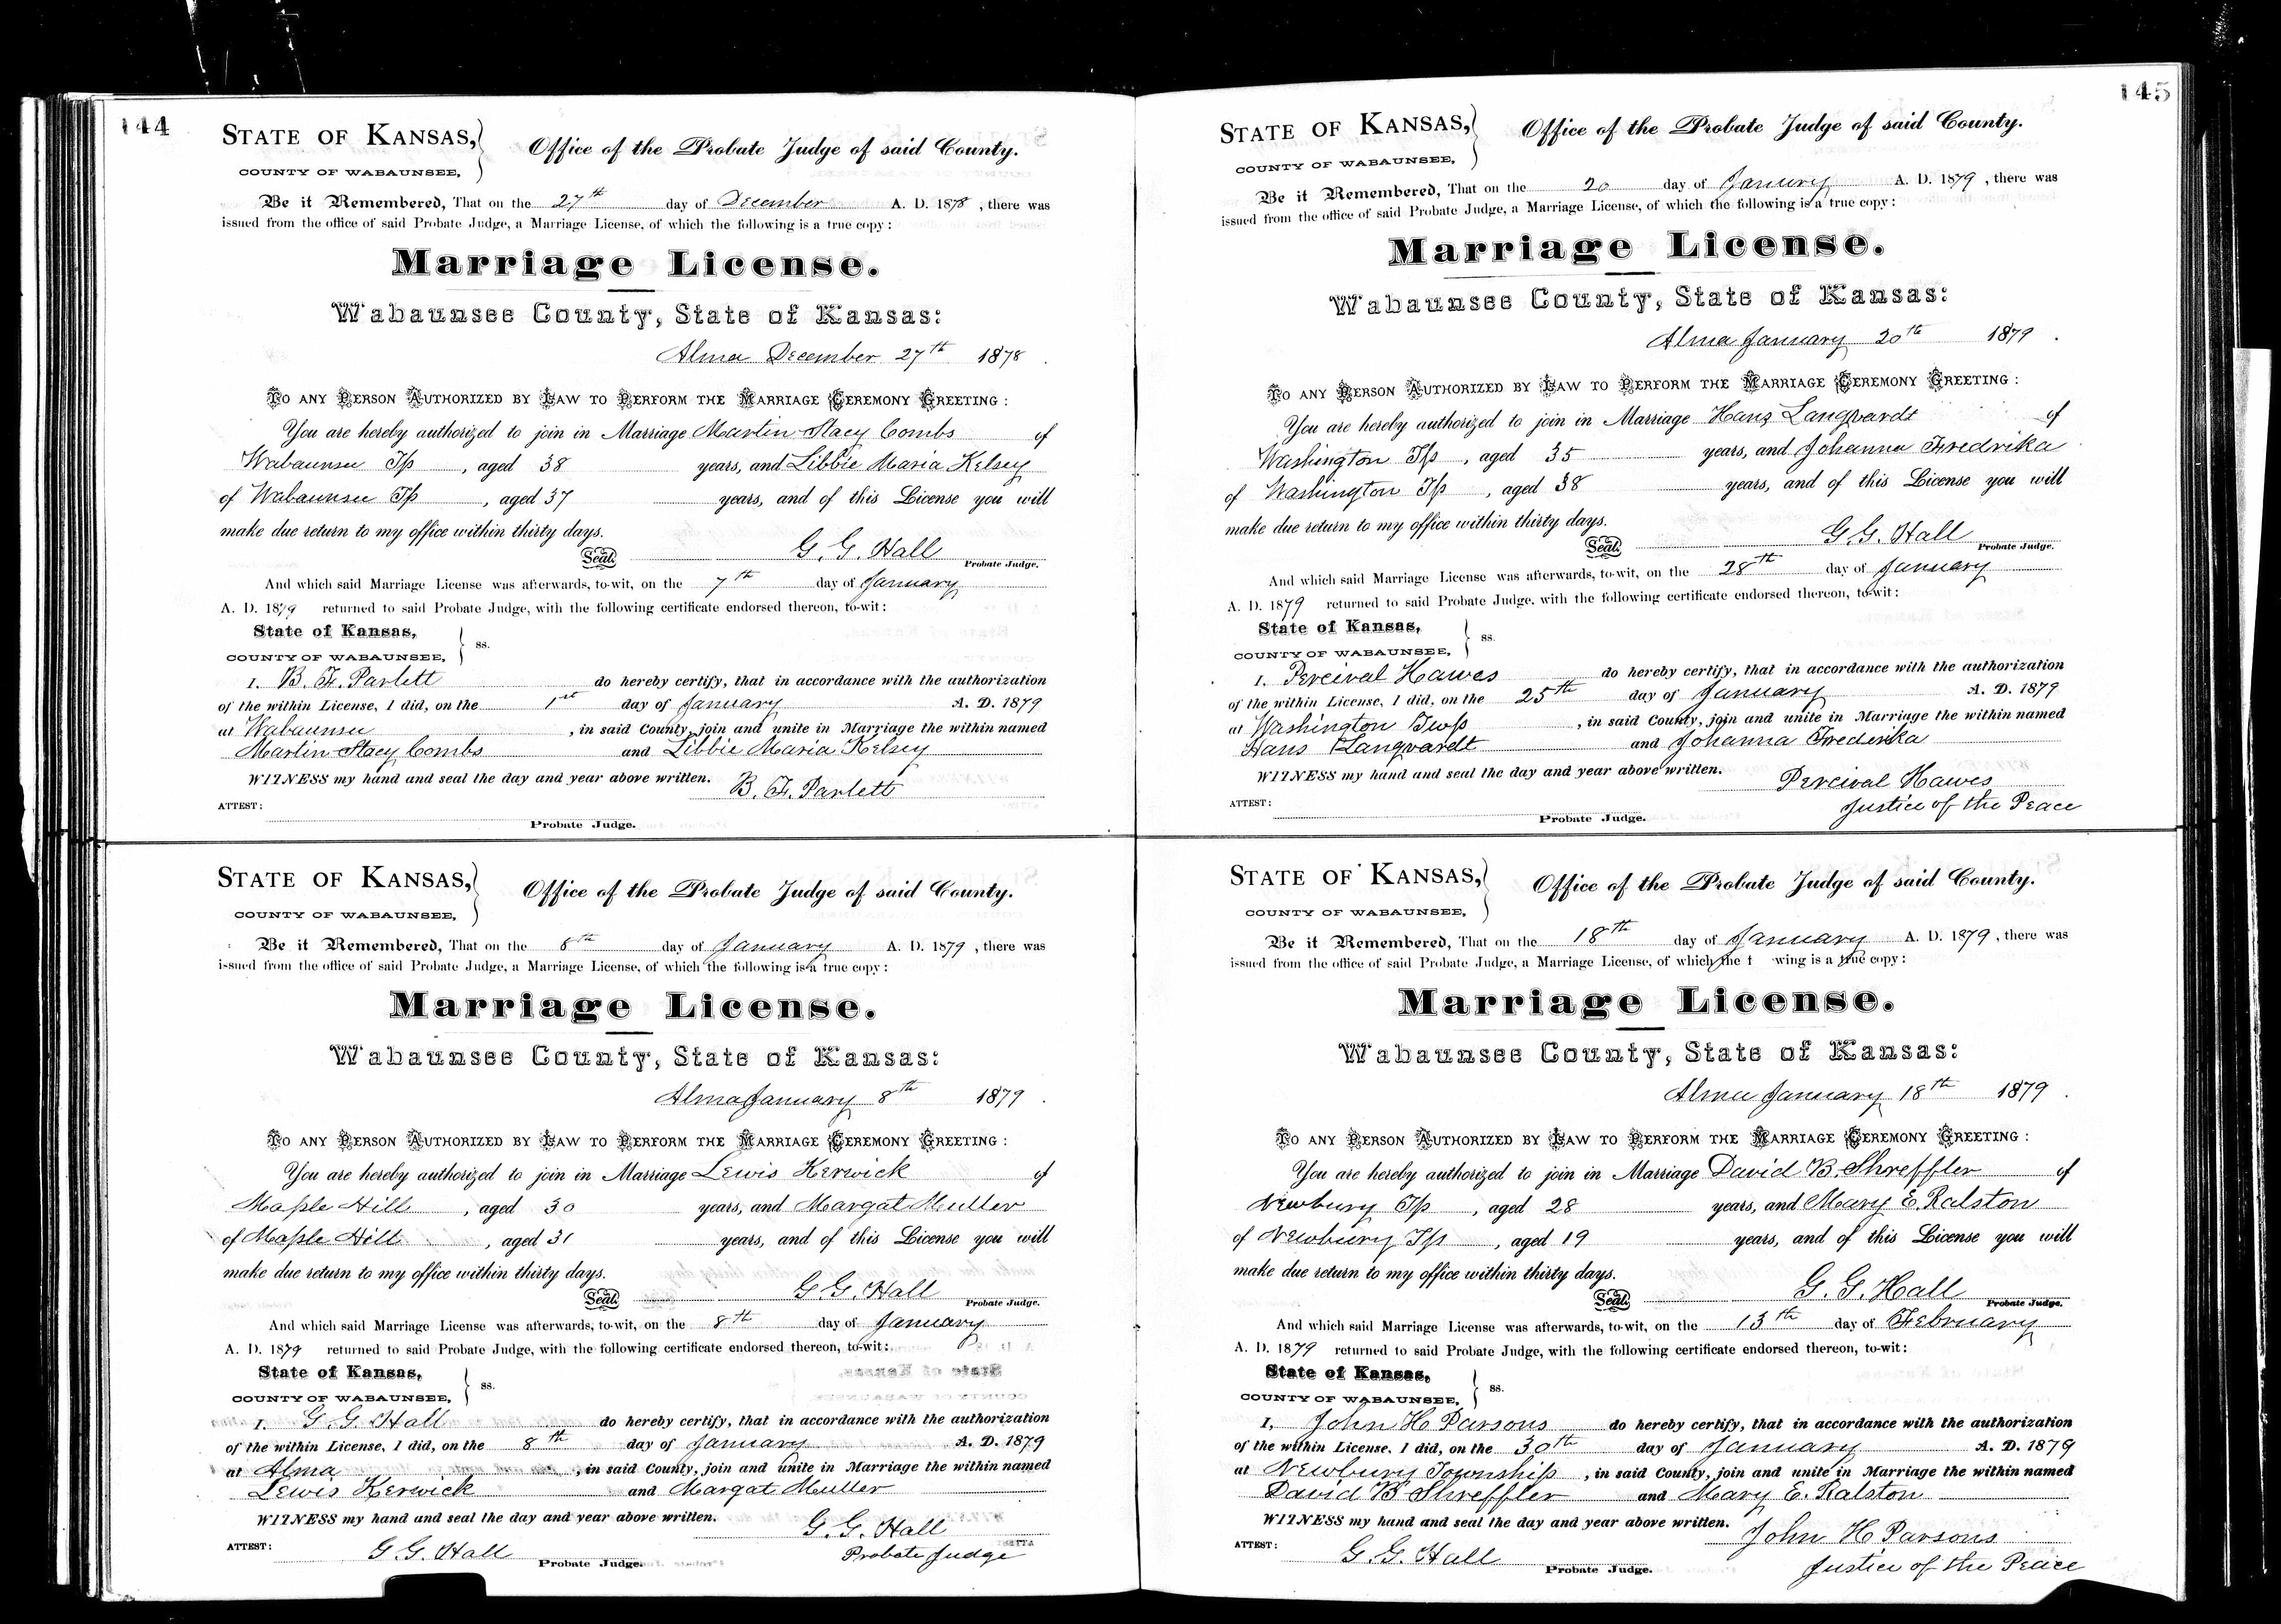 144
STATE OF KANSAS,
COUNTY OF WABAUNSEE,
Office of the Probate Judge of said County.
Be it Remembered, That on the 27th day of December A. D. 1878, there was
issued from the office of said Probate Judge, a Marriage License, of which the following is a true copy:
Marriage License.
Wabaunsee County, State of Kansas:
Alma December 27th 1878.
TO ANY PERSON AUTHORIZED BY LAW TO PERFORM THE MARRIAGE CEREMONY GREETING:
You are hereby authorized to join in Marriage Martin Stacy Combs of
Wabaunsee Tp, aged 38 years, and Libbie Maria Kelsey
of Wabaunsee Tp, aged 37 years, and of this License you will
make due return to my office within thirty days.
Seal. G. G. Hall
Probate Judge.
And which said Marriage License was afterwards, to-wit, on the 7th day of January
A. D. 1879 returned to said Probate Judge, with the following certificate endorsed thereon, to-wit:
State of Kansas,
COUNTY OF WABAUNSEE, ss.
I. B. F. Parlett do hereby certify, that in accordance with the authorization
of the within License, I did, on the 1st day of January A. D. 1879
at Wabaunsee, in said County, join and unite in Marriage the within named
Martin Stacy Combs and Libbie Maria Kelsey
WITNESS my hand and seal the day and year above written. B. F. Parlett
ATTEST:
Probate Judge.
STATE OF KANSAS,
COUNTY OF WABAUNSEE,
Office of the Probate Judge of said County.
Be it Remembered, That on the 8th day of January A. D. 1879, there was
issued from the office of said Probate Judge, a Marriage License, of which the following is a true copy:
Marriage License.
Wabaunsee County, State of Kansas:
Alma January 8th 1879.
TO ANY PERSON AUTHORIZED BY LAW TO PERFORM THE MARRIAGE CEREMONY GREETING:
You are hereby authorized to join in Marriage Lewis Kerwick of
Maple Hill, aged 30 years, and Margat Muller
of Maple Hill, aged 31 years, and of this License you will
make due return to my office within thirty days.
Seal. G. G. Hall
Probate Judge.
And which said Marriage License was afterwards, to-wit, on the 8th day of January
A. D. 1879 returned to said Probate Judge, with the following certificate endorsed thereon, to-wit:
State of Kansas,
COUNTY OF WABAUNSEE, ss.
I. G. G. Hall do hereby certify, that in accordance with the authorization
of the within License, I did, on the 8th day of January A. D. 1879
at Alma, in said County, join and unite in Marriage the within named
Lewis Kerwick and Margat Muller
WITNESS my hand and seal the day and year above written. G. G. Hall
ATTEST: G. G. Hall Probate Judge
Probate Judge.
145
STATE OF KANSAS,
COUNTY OF WABAUNSEE,
Office of the Probate Judge of said County.
Be it Remembered, That on the 20 day of January A. D. 1879, there was
issued from the office of said Probate Judge, a Marriage License, of which the following is a true copy:
Marriage License.
Wabaunsee County, State of Kansas:
Alma January 20th 1879.
TO ANY PERSON AUTHORIZED BY LAW TO PERFORM THE MARRIAGE CEREMONY GREETING:
You are hereby authorized to join in Marriage Hans Langvardt of
Washington Tp, aged 35 years, and Johanna Fredrika
of Washington Tp, aged 38 years, and of this License you will
make due return to my office within thirty days.
Seal. G. G. Hall
Probate Judge.
And which said Marriage License was afterwards, to-wit, on the 28th day of January
A. D. 1879 returned to said Probate Judge, with the following certificate endorsed thereon, to-wit:
State of Kansas,
COUNTY OF WABAUNSEE, ss.
I. Percival Hawes do hereby certify, that in accordance with the authorization
of the within License, I did, on the 25th day of January A. D. 1879
at Washington Twp, in said County, join and unite in Marriage the within named
Hans Langvardt and Johanna Frederika
WITNESS my hand and seal the day and year above written. Percival Hawes
ATTEST: Justice of the Peace
Probate Judge.
STATE OF KANSAS,
COUNTY OF WABAUNSEE,
Office of the Probate Judge of said County.
Be it Remembered, That on the 18th day of January A. D. 1879, there was
issued from the office of said Probate Judge, a Marriage License, of which the f wing is a true copy:
Marriage License.
Wabaunsee County, State of Kansas:
Alma January 18th 1879.
TO ANY PERSON AUTHORIZED BY LAW TO PERFORM THE MARRIAGE CEREMONY GREETING:
You are hereby authorized to join in Marriage David B. Shreffler of
Newbury Tp, aged 28 years, and Mary E. Ralston
of Newbury Tp, aged 19 years, and of this License you will
make due return to my office within thirty days.
Seal. G. G. Hall
Probate Judge.
And which said Marriage License was afterwards, to-wit, on the 13th day of February
A. D. 1879 returned to said Probate Judge, with the following certificate endorsed thereon, to-wit:
State of Kansas,
COUNTY OF WABAUNSEE, ss.
I, John H Parsons do hereby certify, that in accordance with the authorization
of the within License, I did, on the 30th day of January A. D. 1879
at Newbury Township, in said County, join and unite in Marriage the within named
David B Shreffler and Mary E. Ralston
WITNESS my hand and seal the day and year above written. John H Parsons
ATTEST: G. G. Hall Justice of the Peace
Probate Judge.